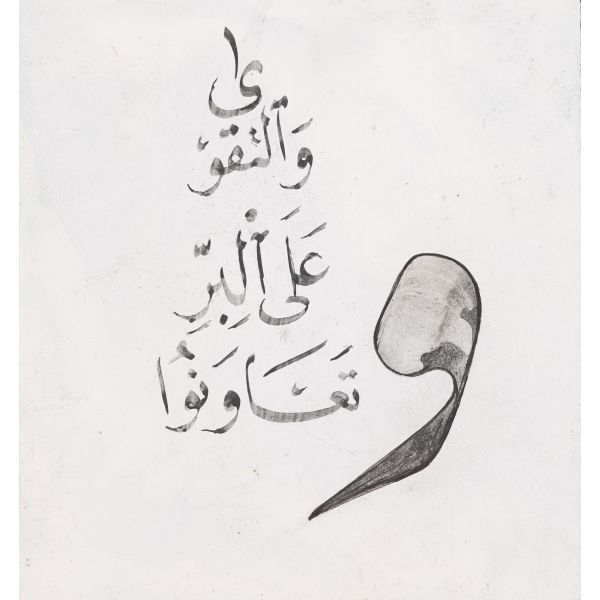 و تَعَاوَنُوا
عَلَى ٱلْبِرِّ
وَٱلتقوى